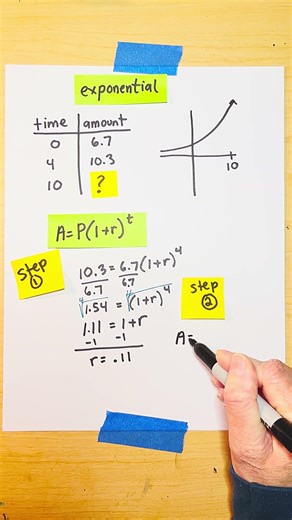 exponential
time amount
0 6.7
4 10.3
10 ?
10
A=P(1+r)^t
step ①
10.3 = 6.7(1+r)^4
6.7 6.7
⁴√1.54 = ⁴√(1+r)^4
1.11 = 1+r
-1 -1
r = .11
step ②
A=